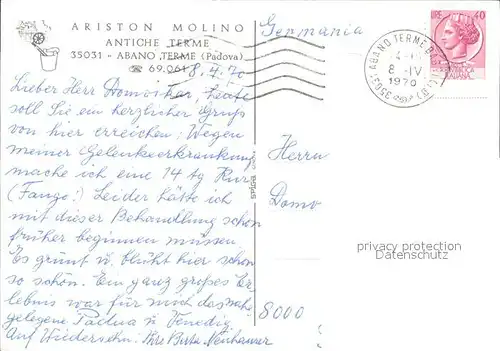 ARISTON MOLINO
ANTICHE TERME
35031 - ABANO TERME (Padova)
☎ 69.061
8.4.70
Lieber Herr Domo, heute
soll Sie ein herzlicher Gruß
von hier erreichen; Wegen
meiner Gelenkerkrankung
mache ich eine 14 tg Kur
(Fango!) Leider hätte ich
mit dieser Behandlung schon
früher beginnen müssen.
Es grünt u. blüht hier schon
so schön. Ein ganz großes Er
lebnis war für mich das nahe
gelegene Padua u Venedig.
Auf Wiedersehn: Ihre Neuhauser
Germania
LIRE 40
ITALIANA
35031 ABANO TERME
8 -IV
1970
Herrn
Domo
8000
privacy protection
Datenschutz